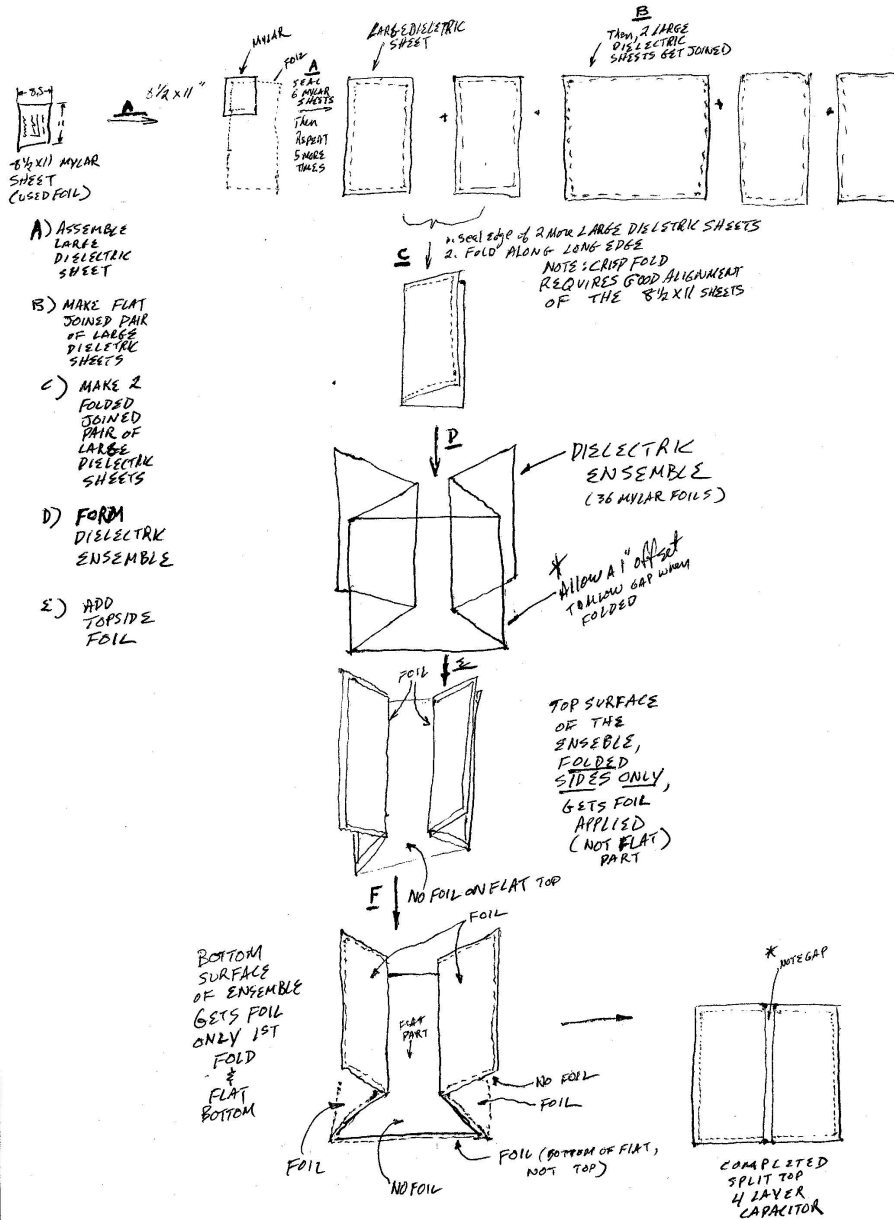 MYLAR
FOIL
LARGE DIELETRIC
SHEET
B
THEN, 2 LARGE
DIELECTRIC
SHEETS GET JOINED
8.5
11
A
8 1/2 X 11"
A
SEAL
6 MYLAR
SHEETS
THEN
REPEAT
5 MORE
TIMES
+
+
+
+
8 1/2 X 11 MYLAR
SHEET
(USED FOIL)
A) ASSEMBLE
LARGE
DIELECTRIC
SHEET
B) MAKE FLAT
JOINED PAIR
OF LARGE
DIELETRIC
SHEETS
C) MAKE 2
FOLDED
JOINED
PAIR OF
LARGE
DIELECTRIC
SHEETS
D) FORM
DIELECTRIC
ENSEMBLE
E) ADD
TOPSIDE
FOIL
C
1. Seal edge of 2 MORE LARGE DIELETRIC SHEETS
2. FOLD ALONG LONG EDGE
NOTE: CRISP FOLD
REQUIRES GOOD ALIGNMENT
OF THE 8 1/2 X 11 SHEETS
D
DIELECTRIC
ENSEMBLE
(36 MYLAR FOILS)
*
Allow A 1" offset
TO ALLOW GAP when
FOLDED
E
FOIL
TOP SURFACE
OF THE
ENSEBLE,
FOLDED
SIDES ONLY,
GETS FOIL
APPLIED
(NOT FLAT)
PART
NO FOIL ON FLAT TOP
F
BOTTOM
SURFACE
OF ENSEMBLE
GETS FOIL
ONLY 1ST
FOLD
&
FLAT
BOTTOM
FOIL
FLAT
PART
NO FOIL
FOIL
FOIL (BOTTOM OF FLAT,
NOT TOP)
FOIL
NO FOIL
*
NOTE GAP
COMPLETED
SPLIT TOP
4 LAYER
CAPACITOR